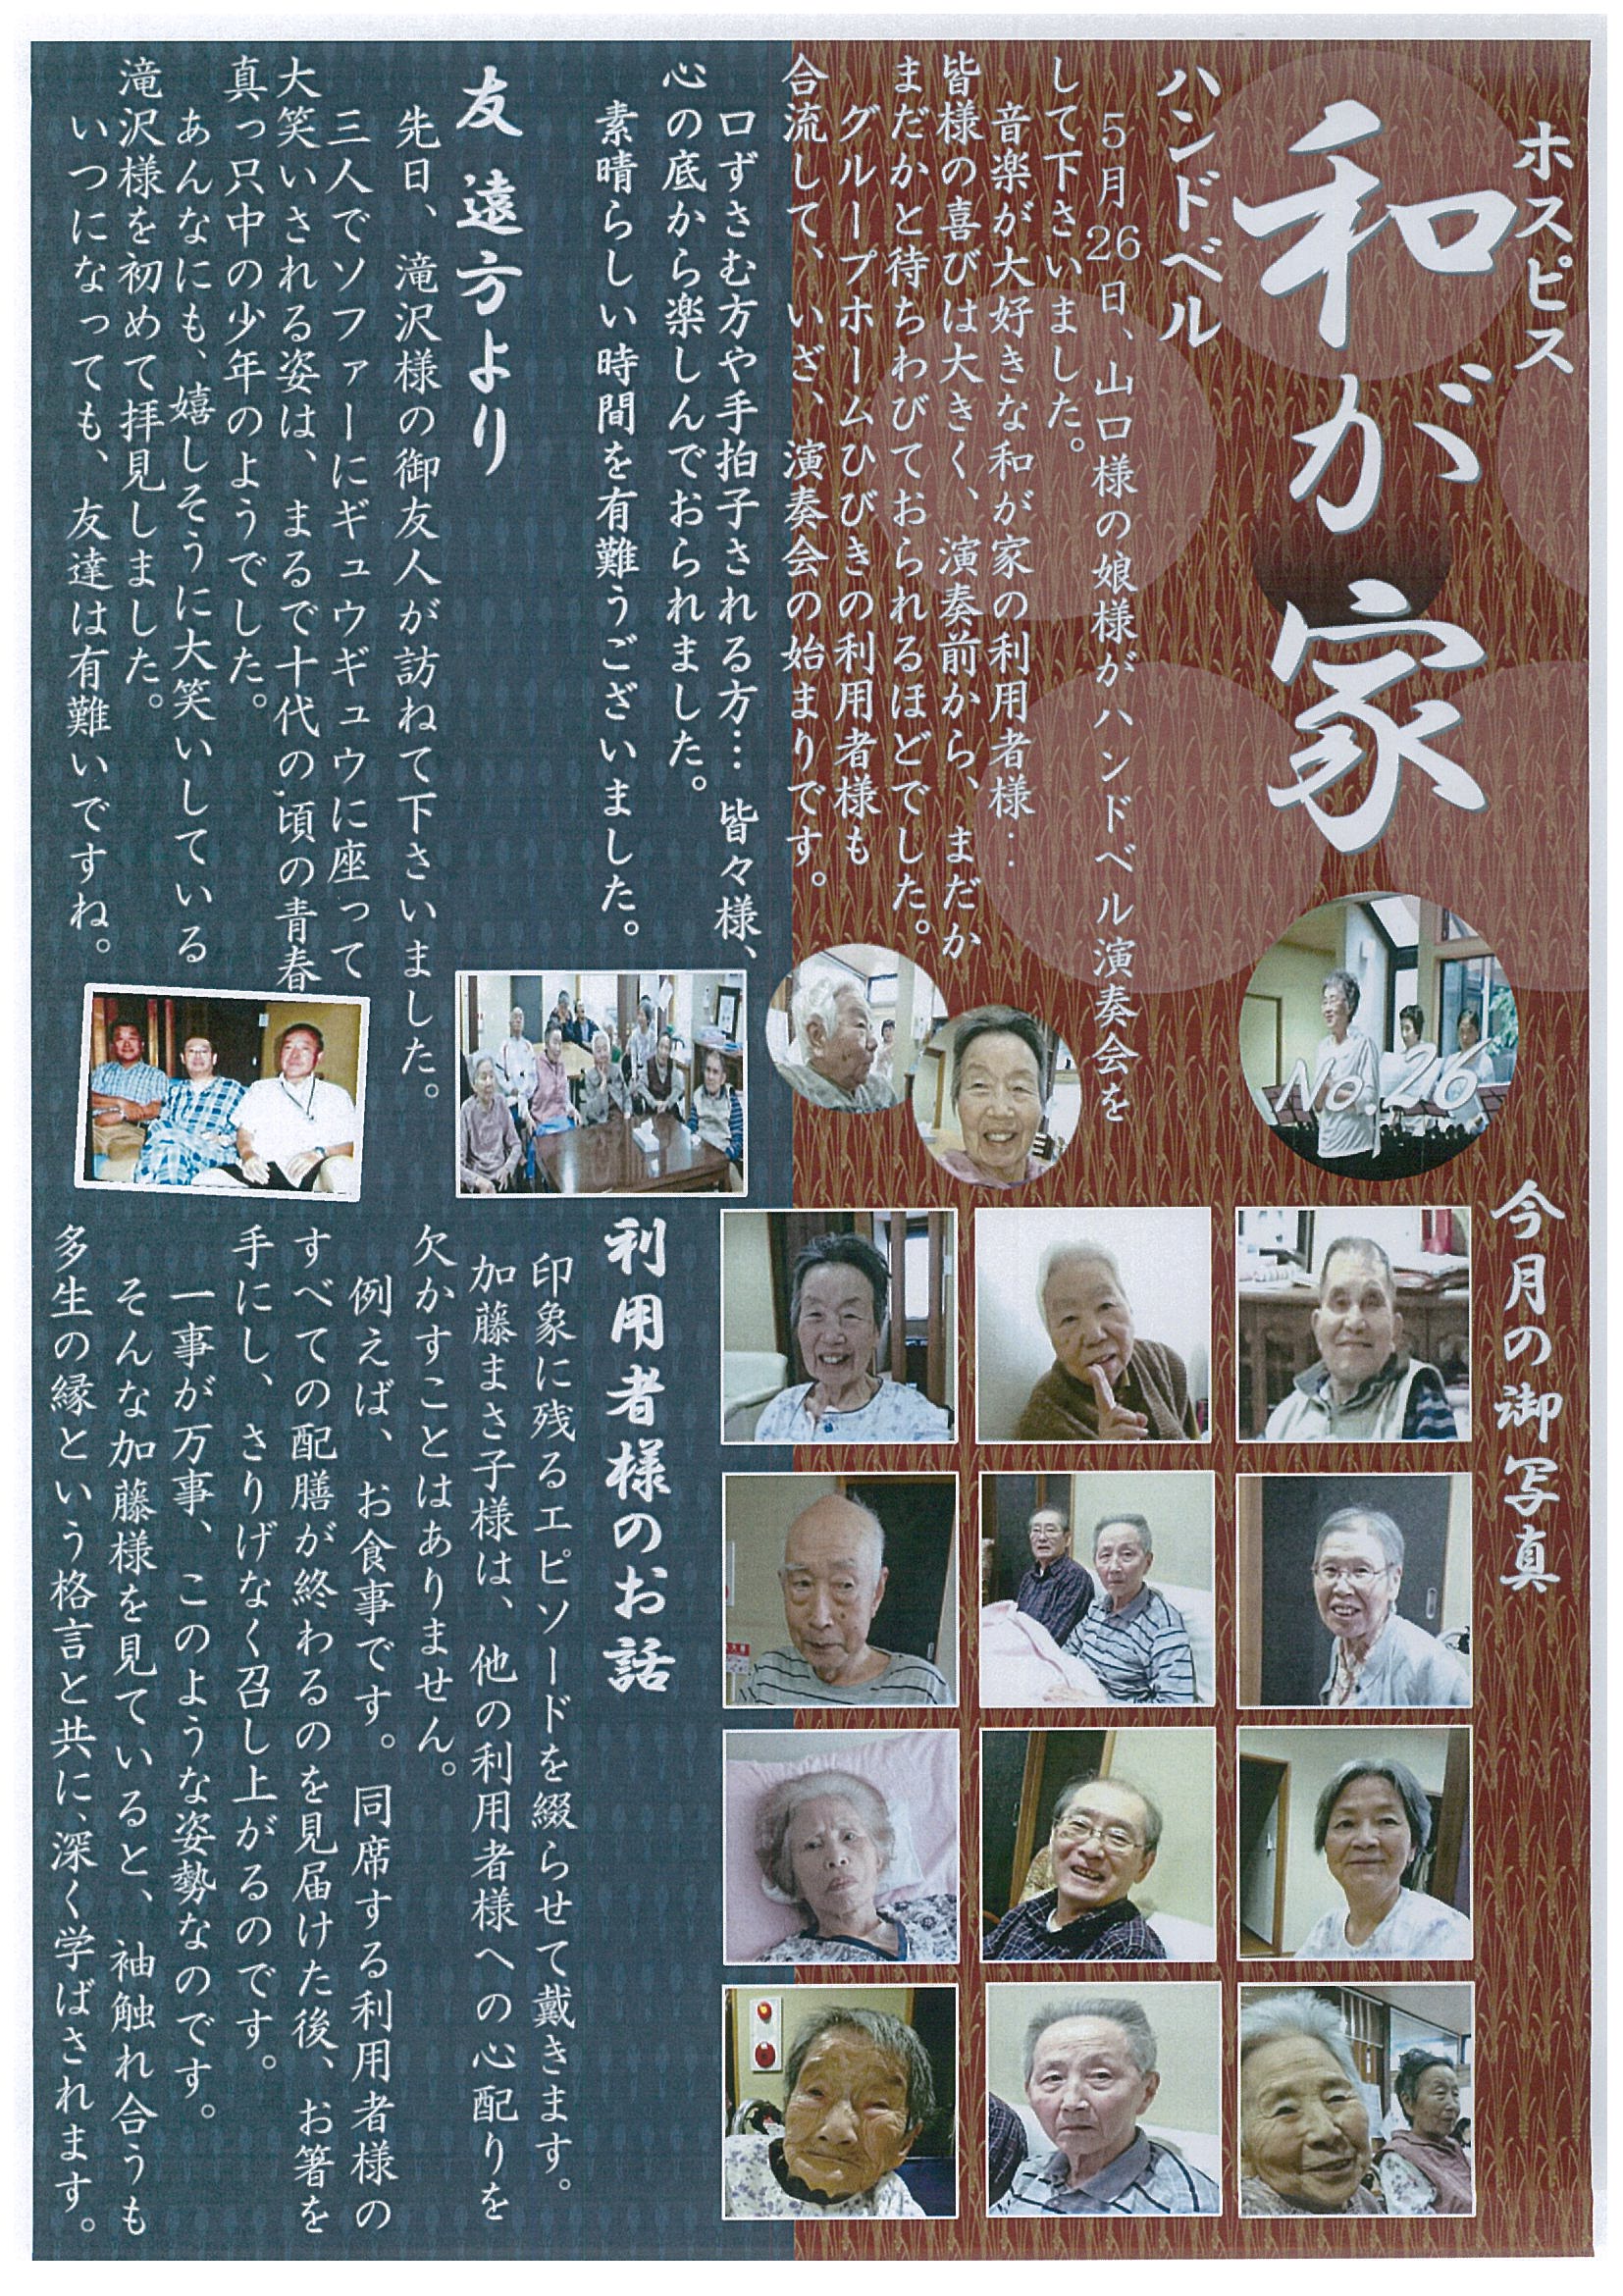 ホスピス
和が家
No.26
ハンドベル
５月26日、山口様の娘様がハンドベル演奏会を
して下さいました。
音楽が大好きな和が家の利用者様‥
皆様の喜びは大きく、演奏前から、まだか
まだかと待ちわびておられるほどでした。
グループホームひびきの利用者様も
合流して、いざ、演奏会の始まりです。
口ずさむ方や手拍子される方… 皆々様、
心の底から楽しんでおられました。
素晴らしい時間を有難うございました。
友 遠方より
先日、滝沢様の御友人が訪ねて下さいました。
三人でソファーにギュウギュウに座って
大笑いされる姿は、まるで十代の頃の青春
真っ只中の少年のようでした。
あんなにも、嬉しそうに大笑いしている
滝沢様を初めて拝見しました。
いつになっても、友達は有難いですね。
今月の御写真
利用者様のお話
印象に残るエピソードを綴らせて戴きます。
加藤まさ子様は、他の利用者様への心配りを
欠かすことはありません。
例えば、お食事です。同席する利用者様の
すべての配膳が終わるのを見届けた後、お箸を
手にし、さりげなく召し上がるのです。
一事が万事、このような姿勢なのです。
そんな加藤様を見ていると、袖触れ合うも
多生の縁という格言と共に、深く学ばされます。